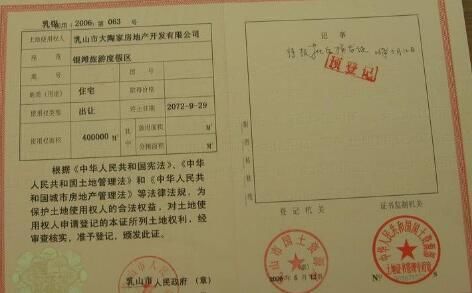 乳 国用（2006）第 063 号
土地使用权人 乳山市大陶家房地产开发有限公司
座落 银滩旅游度假区
地号 图号
地类（用途） 住宅 取得价格
使用权类型 出让 终止日期 2072-9-29
使用权面积 400000 M² 其中 独用面积 M²
分摊面积 M²
根据《中华人民共和国宪法》、《中华
人民共和国土地管理法》和《中华人民共
和国城市房地产管理法》等法律法规，为
保护土地使用权人的合法权益，对土地使
用权人申请登记的本证所列土地权利，经
审查核实，准予登记，颁发此证。
乳山市 人民政府（章）
记事
预登记
登记机关
证书监制机关
山市国土资源
2006 年 5 月 12 日
中华人民共和国国土资源部
土地证书管理专用章
No